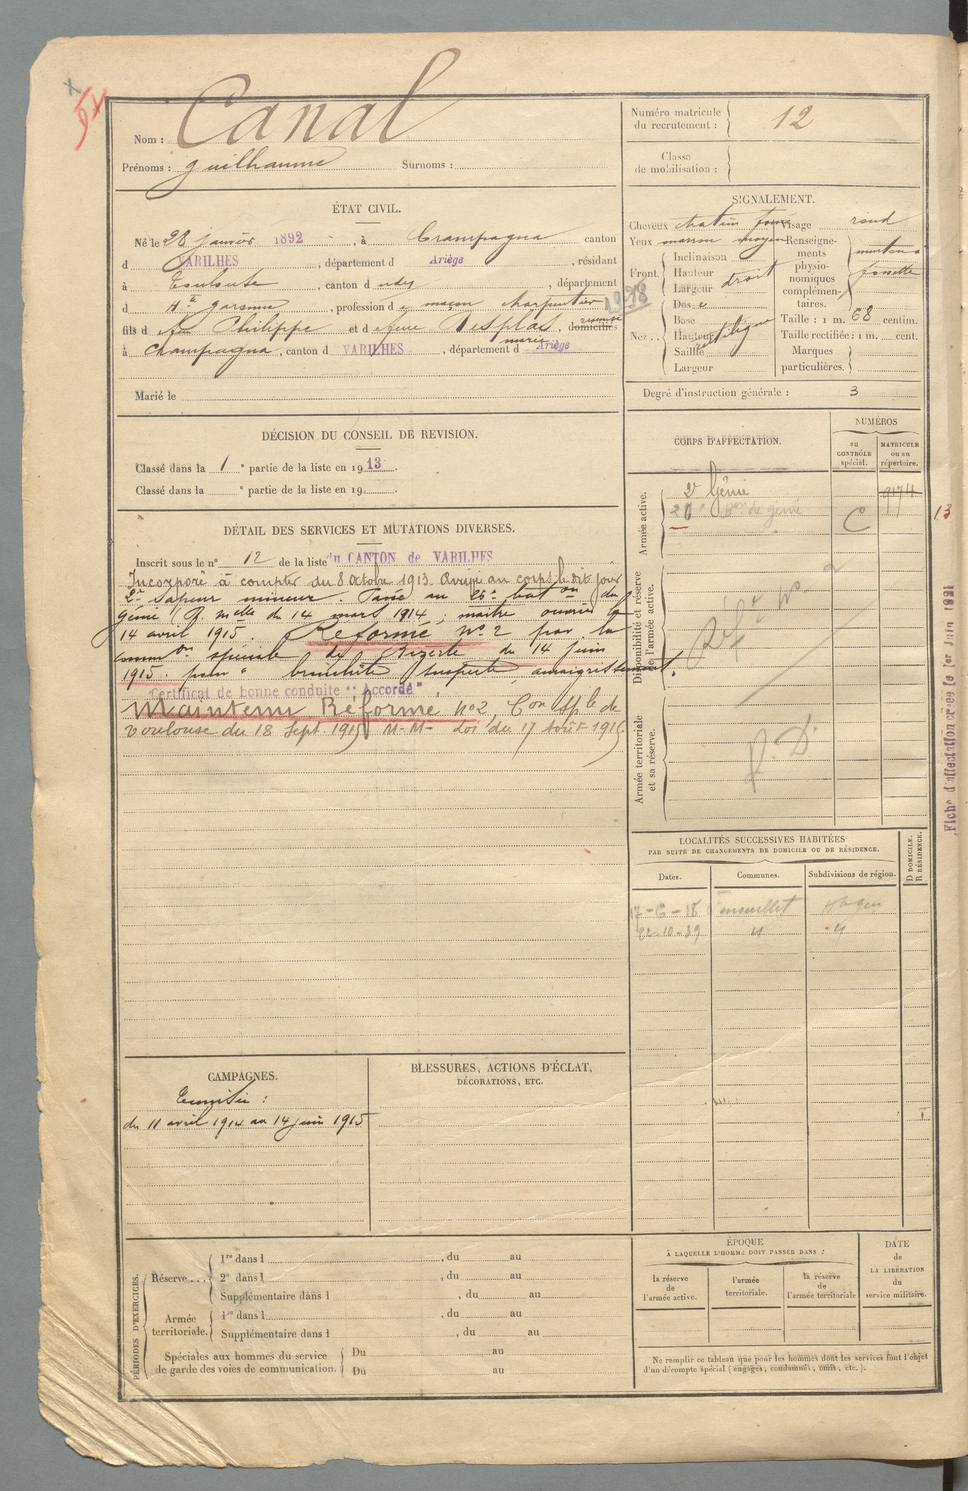 Nom : Canal
Prénoms : guilhaume Surnoms :
ÉTAT CIVIL.
Né le 28 janvier 1892, à Crampagna canton
d VARILHES, département d Ariège, résidant
à Toulouse, canton d udes, département
d Hte garonne, profession de maçon charpentier
fils de feu Philippe et de feue Desplas marie, domiciliés
à Champagna, canton d VARILHES, département d Ariège
Marié le
DÉCISION DU CONSEIL DE REVISION.
Classé dans la 1e partie de la liste en 1913.
Classé dans la e partie de la liste en 19
DÉTAIL DES SERVICES ET MUTATIONS DIVERSES.
Inscrit sous le n° 12 de la liste du CANTON de VARILHES
Incorporé à compter du 8 Octobre 1913. Arrivé au corps le dit jour
2e Sapeur mineur. Passé au 26e baton du
génie (R. mlle du 14 mars 1914; maître ouvrier le
14 avril 1915. Réformé n° 2 par la
common spéciale de Bizerte du 14 juin
1915 pour " bronchite suspecte, amaigrissement.
Certificat de bonne conduite "Accordé"
Maintenu Réformé n°2, Con Sple de
Toulouse du 18 Sept 1915 M-M- Loi du 17 Août 1915
CAMPAGNES.
Tunisie :
du 11 avril 1914 au 14 juin 1915
BLESSURES, ACTIONS D'ÉCLAT,
DÉCORATIONS, ETC.
PÉRIODES D'EXERCICES.
Réserve...
1re dans l , du au
2e dans l , du au
Supplémentaire dans l , du au
Armée territoriale.
1re dans l , du au
Supplémentaire dans l , du au
Spéciales aux hommes du service
de garde des voies de communication.
Du au
Du au
Numéro matricule
du recrutement : 12
Classe
de mobilisation :
SIGNALEMENT.
Cheveux chatain foncé Visage rond
Yeux marron moyen
Front.
Inclinaison
Hauteur
Largeur droit
Nez...
Dos
Base
Hauteur rectiligne
Saillie
Largeur
Renseignements
physionomiques
complémentaires.
menton à
fossette
Taille : 1 m. 68 centim.
Taille rectifiée : 1 m. cent.
Marques
particulières.
Degré d'instruction générale : 3
CORPS D'AFFECTATION.
NUMÉROS
AU
CONTRÔLE
spécial.
MATRICULE
OU AU
répertoire.
Armée active.
2e Génie
26e Bon de génie C
Disponibilité et réserve
de l'armée active.
Réf n° 2
Armée territoriale
et sa réserve.
Fiche d'affectation créée le 1er Juin 1921
LOCALITÉS SUCCESSIVES HABITÉES
PAR SUITE DE CHANGEMENTS DE DOMICILE OU DE RÉSIDENCE.
D DOMICILE.
R RÉSIDENCE.
Dates. Communes. Subdivisions de région.
17-6-18 Fenouillet
22-10-29 " "
ÉPOQUE
À LAQUELLE L'HOMME DOIT PASSER DANS :
la réserve
de
l'armée active.
l'armée
territoriale.
la réserve
de
l'armée territoriale
DATE
de
LA LIBÉRATION
du
service militaire.
Ne remplir ce tableau que pour les hommes dont les services font l'objet
d'un décompte spécial (engagés, condamnés, omis, etc.).